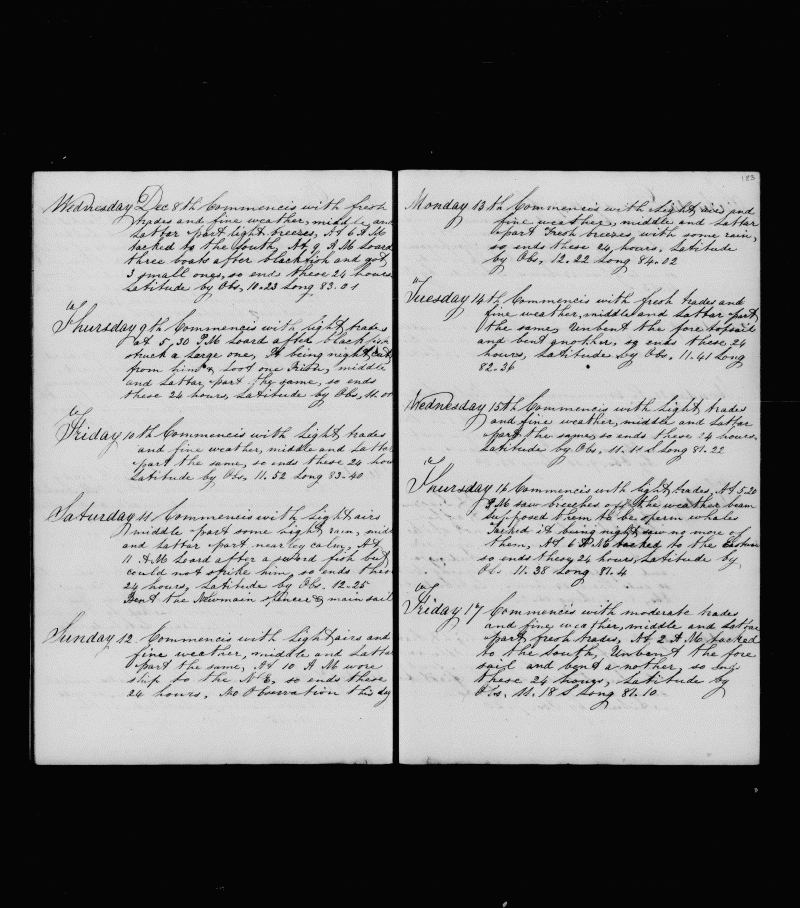 Wednesday Dec 8th Commencis with fresh
trades and fine weather, middle and
Lattar part light breezes, At 6 A M
tacked to the South, At 9 A M Loard
three boats after blackfish and got
3 small ones, so ends these 24 hours
Latitude by Obs, 10.23 Long 83.01
Thursday 9th Commencis with light trades
At 5,30 P M Loard after black fish
struck a Large one, It being night cut
from him & Loot one Irish, middle
and Lattar part the same, so ends
these 24 hours, Latitude by Obs, 11.01
Friday 10th Commencis with Light trades
and fine weather, middle and Lattar
part the same, so ends these 24 hou
Latitude by Obs. 11.52 Long 83.40
Saturday 11 Commencis with Light airs
middle part some Light rain, mid
and Lattar part nearley calm, At
11 A M Loard after a sword fish but
could not strike him, so ends these
24 hours, Latitude by Obs. 12.25
Bent the New main spencer & main sail
Sunday 12. Commencis with Light airs and
fine weather, middle and Lattar
part the same, At 10 A M wore
ship to the N E, so ends these
24 hours, No Observation this day
183
Monday 13th Commencis with Light airs and
fine weather, middle and Lattar
part Fresh breezes, with some rain,
so ends these 24 hours, Latitude
by Obs, 12.22 Long 84.02
Tuesday 14th Commencis with fresh trades and
fine weather, middle and Lattar part
the same, Unbent the fore topsail
and bent another, so ends these 24
hours, Latitude by Obs. 11.41 Long
82.36
Wednesday 15th Commencis with Light trades
and fine weather, middle and Lattar
part the same, so ends these 24 hours.
Latitude by Obs, 11.11 S Long 81.22
Thursday 16 Commencis with light trades, At 5-20
P M saw breeches off the weather beam
supposed them to be sperm whales
Tacked it being night, saw no more of
them, At 6 P M tacked to the Eastward
so ends these 24 hours, Latitude by
Ob. 11.38 Long 81.4
Friday 17 Commencis with moderate trades
and fine weather, middle and Lattar
part fresh trades, At 2 A M tacked
to the South, Unbent the fore
sail and bent a nother, so ends
these 24 hours, Latitude by
Obs, 11.18 S Long 81.10